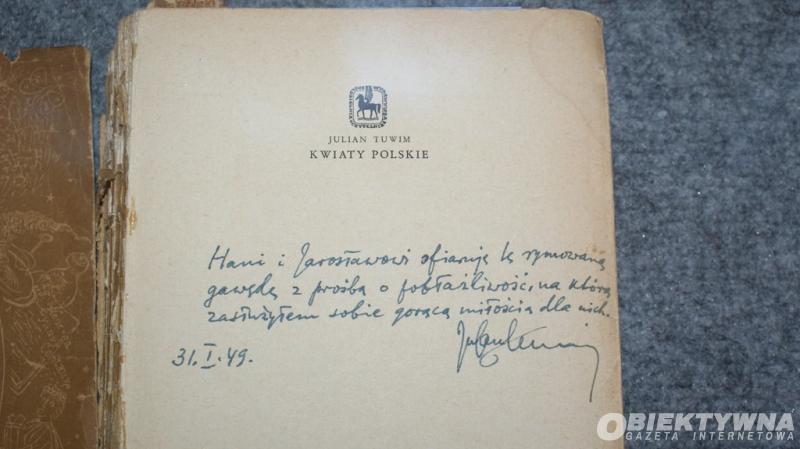 JULIAN TUWIM
KWIATY POLSKIE
Hani i Jarosławowi ofiaruję tę rymowaną
gawędę z prośbą o pobłażliwość, na którą
zasłużyłem sobie gorącą miłością dla nich.
Julian Tuwim
31.I.49.
OBIEKTYWNA
GAZETA INTERNETOWA